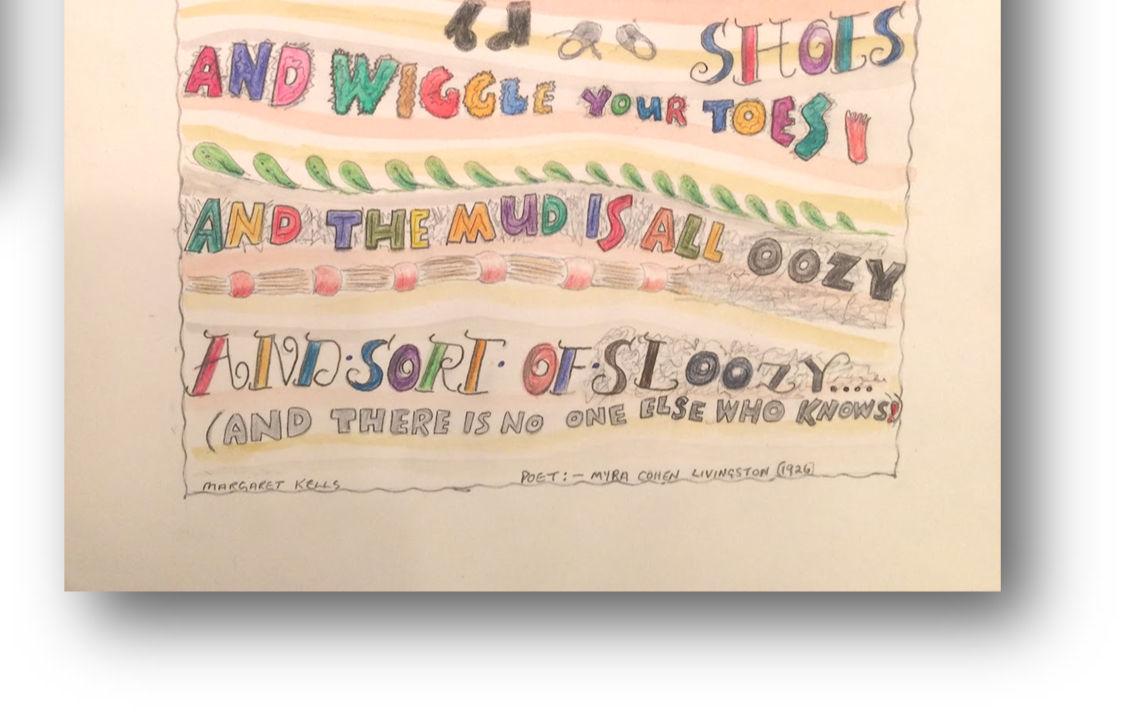 SHOES
AND WIGGLE YOUR TOES!
AND THE MUD IS ALL OOZY
AND·SORT· OF·SLOOZY....
(AND THERE IS NO ONE ELSE WHO KNOWS!)
MARGARET KELLS
POET:- MYRA COHEN LIVINGSTON (1926)